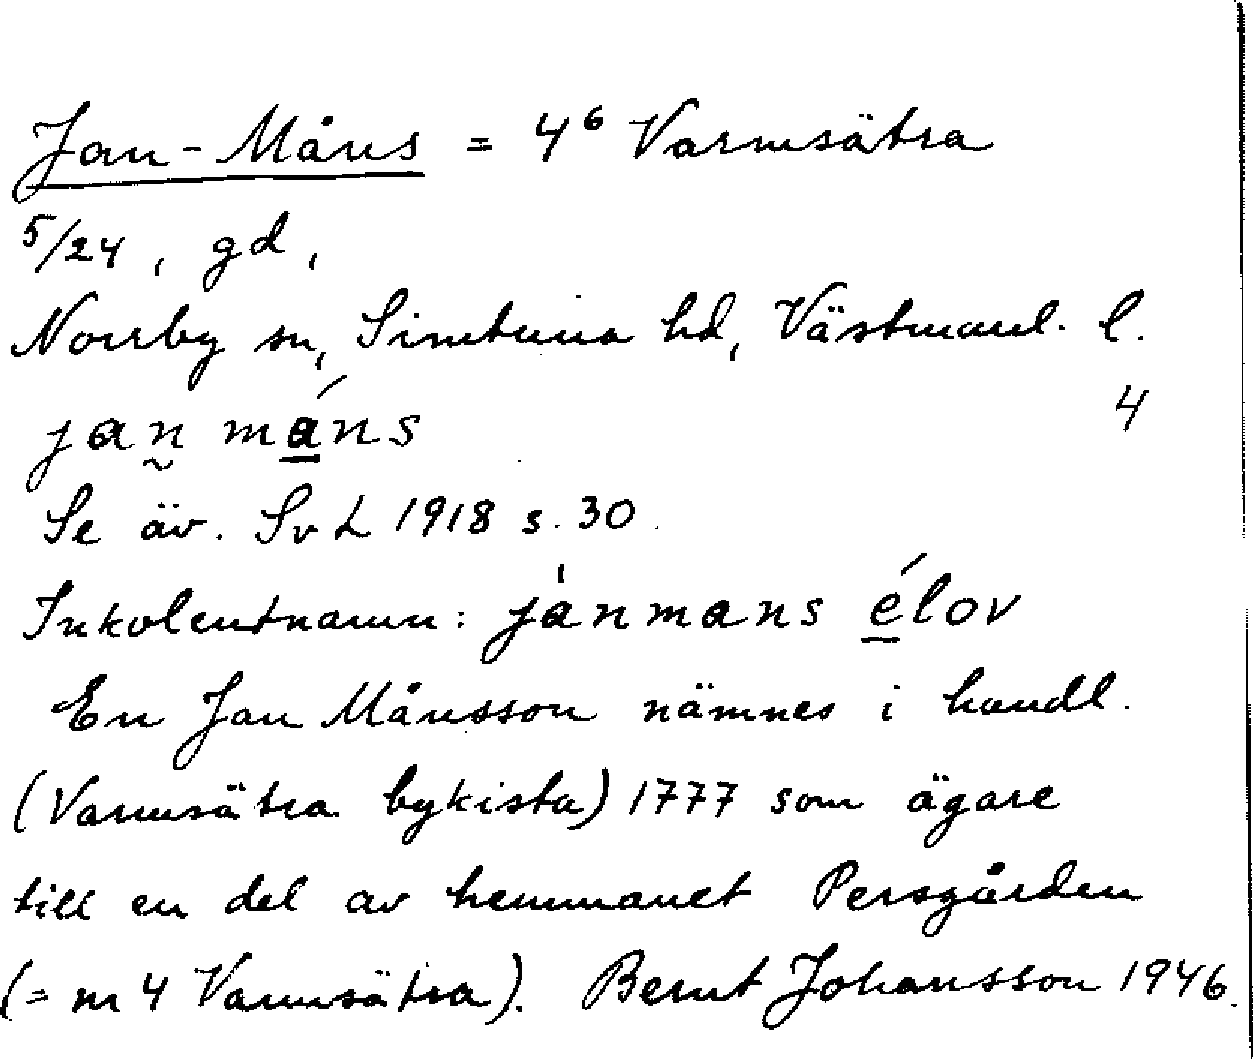 Jan-Måns = 4⁶ Varmsätra
5/24, gd,
Norrby sn, Simtuna hd, Västmanl. l.
4
jan máns
Se äv. SvL 1918 s. 30.
Inkolentnamn: jànmans élov
En Jan Månsson nämnes i handl.
(Varmsätra bykista) 1777 som ägare
till en del av hemmanet Persgården
(= nr 4 Varmsätra). Bernt Johansson 1946.